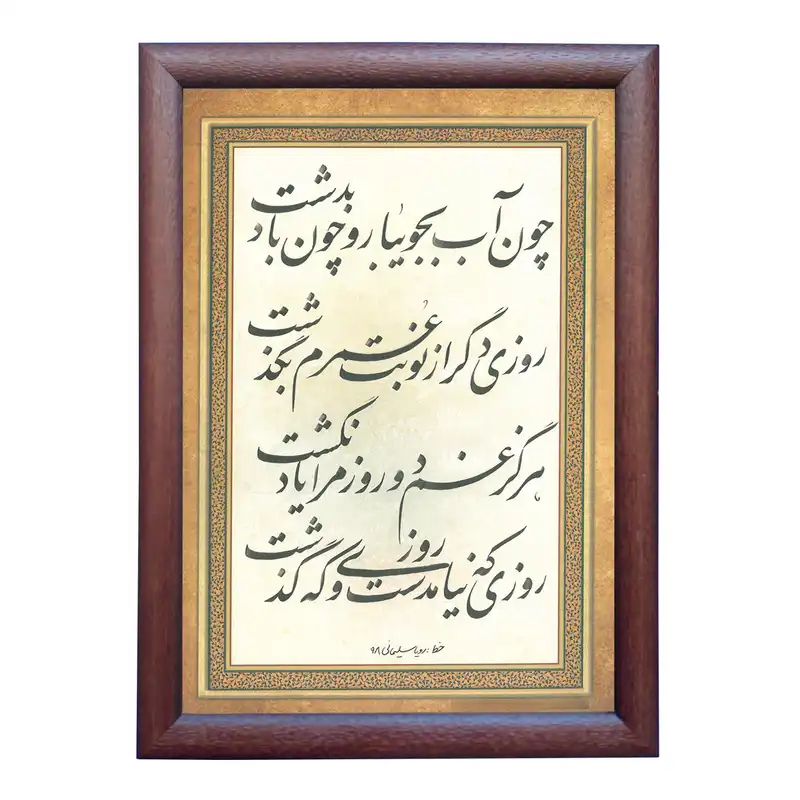 چون آب بجویبار و چون باد بدشت
روزی دگر از نوبت عمرم بگذشت
هرگز غم دو روز مرا یاد نگشت
روزی که نیامدست و روزی که گذشت
خط: رویا سلیمانی ۹۸